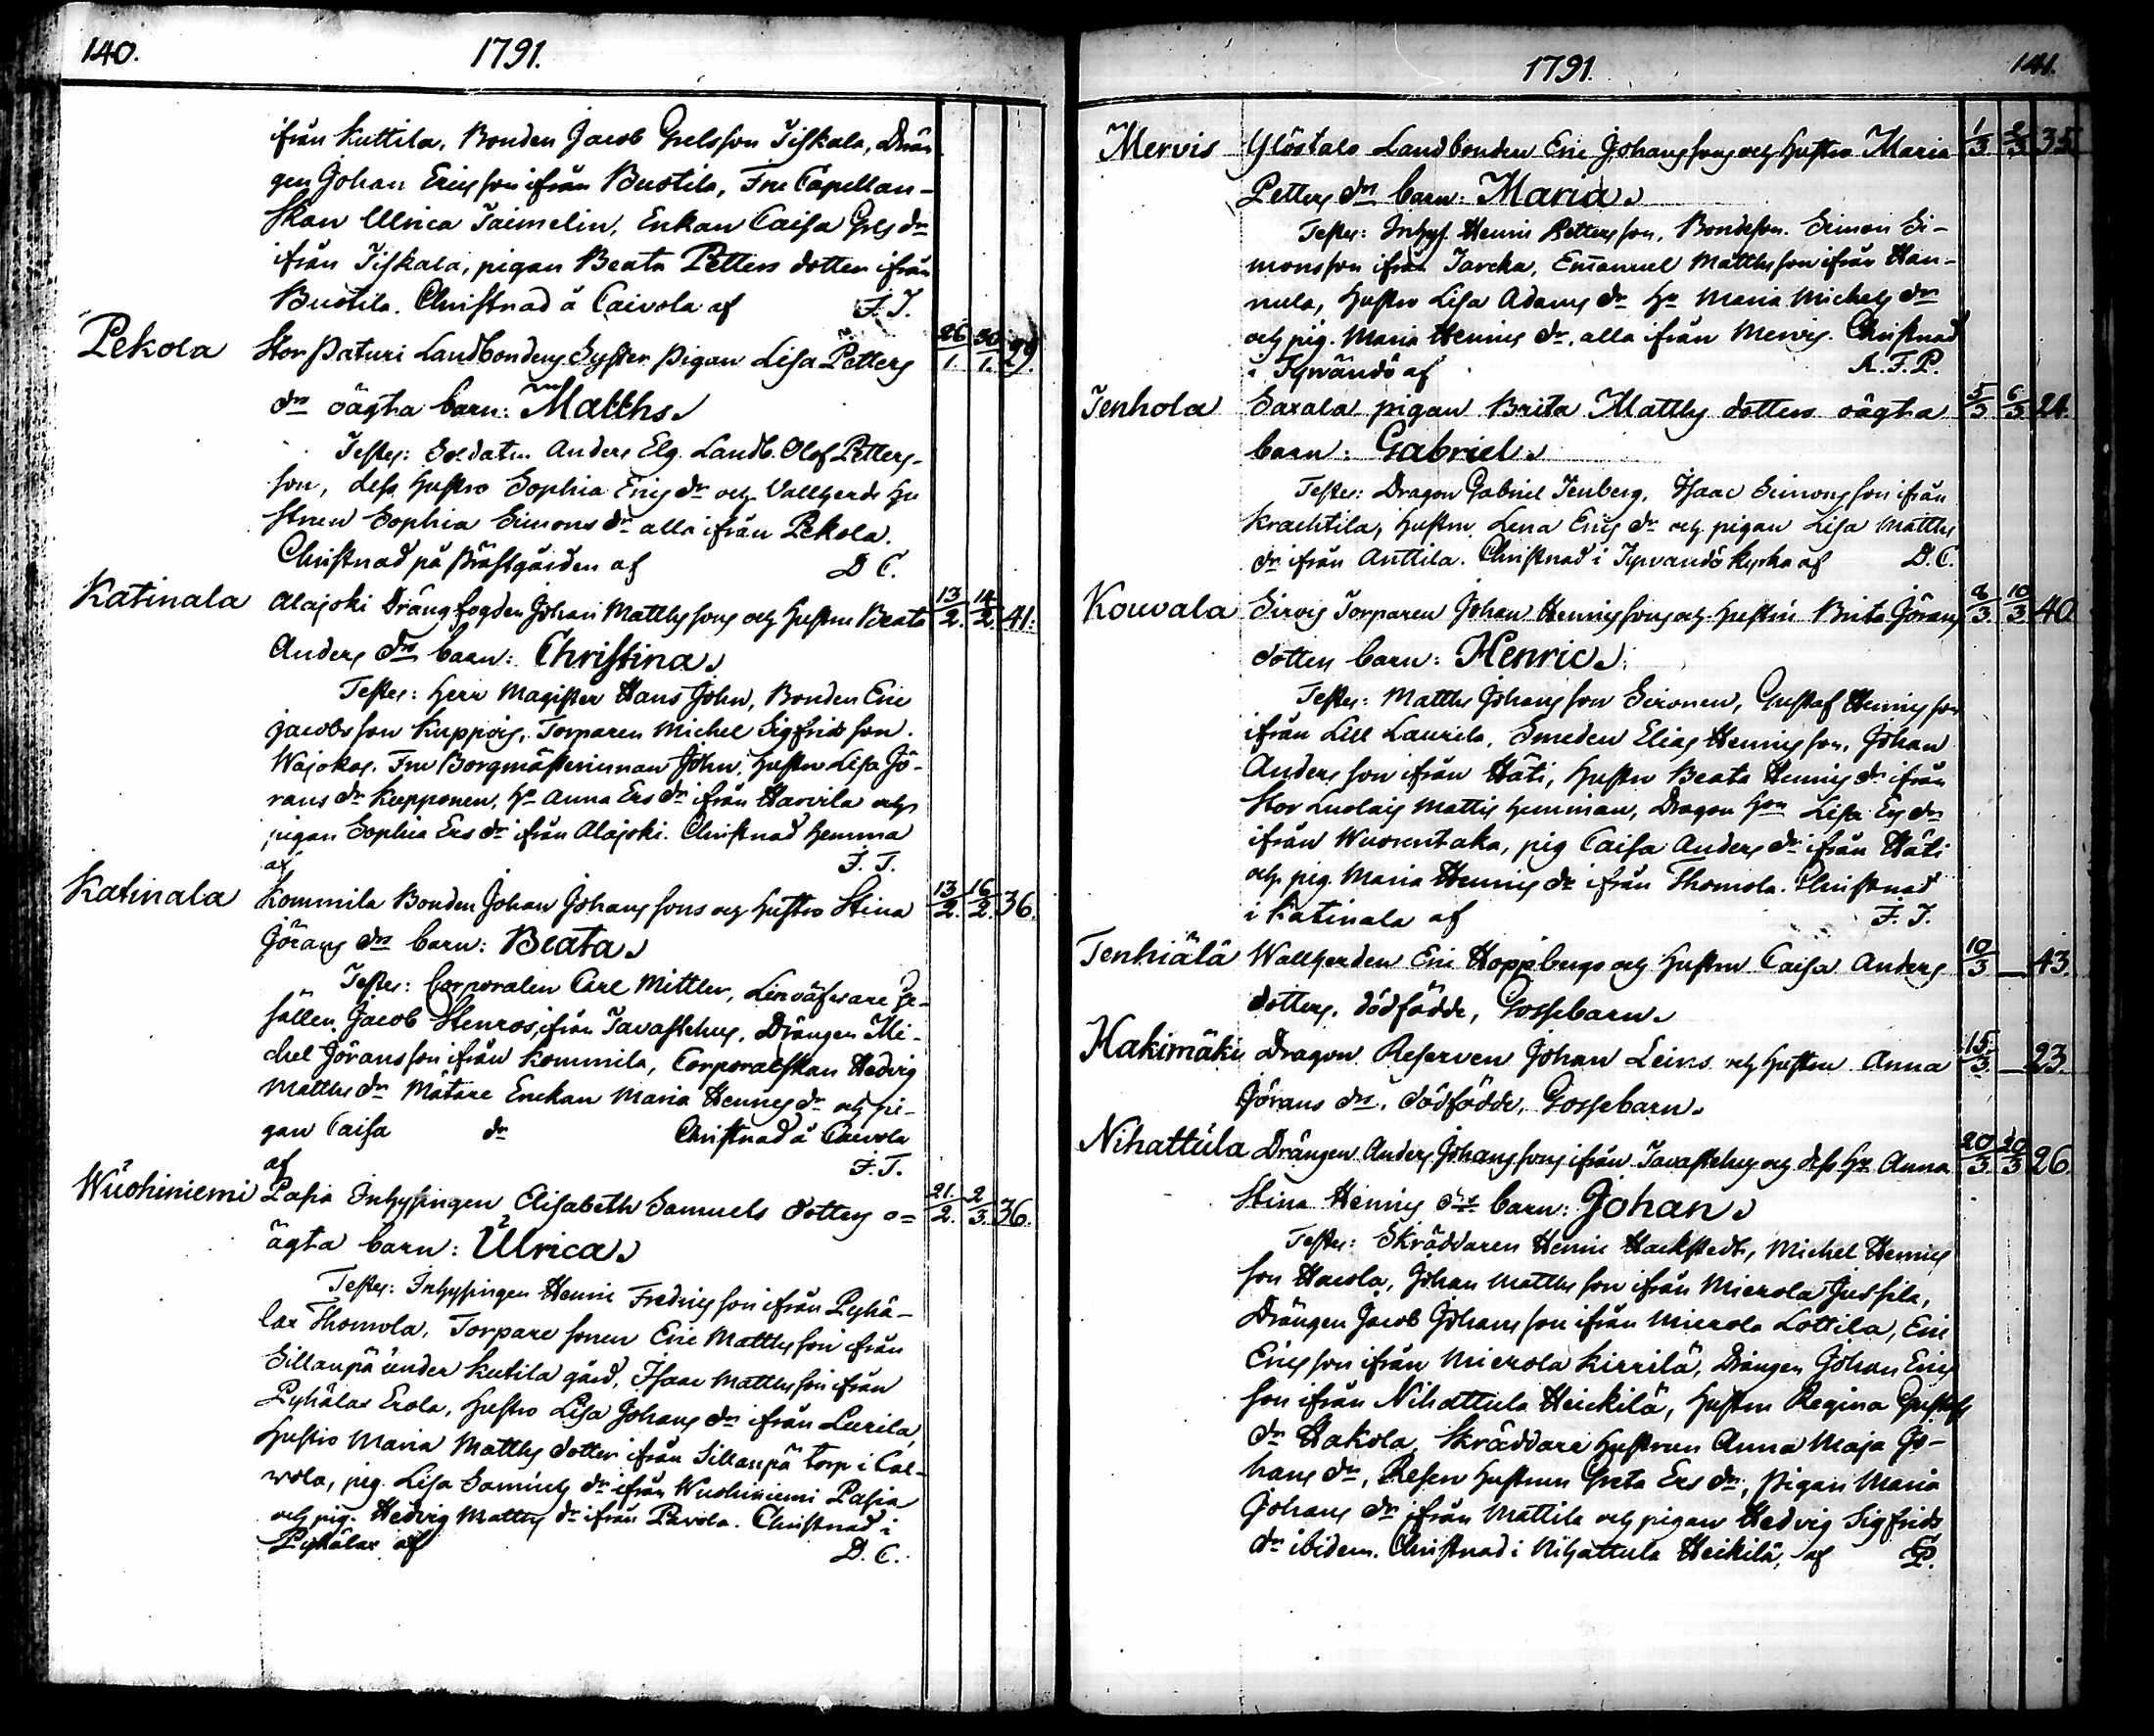 140. 1791.
ifrån Kuttila, Bonden Jacob Grelsson Tiskala, Drän
gen Johan Ericsson ifrån Buotila, Fru Capellan-
skan Ulrica Taimelin, Enkan Caisa Grls dr
ifrån Tiskala, pigan Beata Petters dotter ifrån
Buotila. Christnad å Caivola af F. T.
Pekola Stor Paturi Landbondens Syster Pigan Lisa Petters 26/1. 30/1. 29.
drs oägta barn: Matths.
Testes: Soldaten Anders Elg. Landb. Olof Petters-
son, dess hustro Sophia Erics dr och Vallherde hu
strun Sophia Simons dr alla ifrån Pekola.
Christnad på Prästgården af D C.
Katinala Alajoki Drängfogden Johan Matthssons och hustru Beata 13/2. 14/2. 41.
Anders drs barn: Christina.
Testes: Herr Magister Hans John, Bonden Eric
Jacobsson Kuppois, Torparen Michel Sigfridsson
Wajokas. Fru Borgmästerinnan John, hustru Lisa Jö-
rans dr Kupponen, hu Anna Ers dr ifrån Harvila och
pigan Sophia Ers dr ifrån Alajoki. Christnad hemma
af F. T.
Katinala Kommila Bonden Johan Johanssons och hustro Stina 13/2. 16/2. 36.
Jörans drs barn: Beata.
Testes: Corporalen Carl Mittler, Linväfvare Ge-
sällen Jacob Stenros, ifrån Tavastehus, Drängen Mi-
chel Jöransson ifrån Kommila, Corporalskan Hedvig
Matths dr Mätare Enckan Maria Henrics dr och pi-
gan Caisa dr Christnad å Caivola
af F. T.
Wuohiniemi Pasia Inhysingen Elisabeth Samuels dotters o= 21/2. 2/3. 36.
ägta barn: Ulrica.
Testes: Inhysingen Henric Fredricsson ifrån Pyhä-
lax Thomola, Torpare sonen Eric Matthsson ifrån
Sillanpä under Kutila gård, Isaac Matthsson ifrån
Pyhälax Erola, hustro Lisa Johans dr ifrån Lurila,
hustro Maria Matths dotter ifrån Sillanpä torp i Cal-
vola, pig. Lisa Samuels dr ifrån Wuohiniemi Pasia
och pig. Hedvig Matths dr ifrån Pavola. Christnad i
Pyhälax af D. C.
1791. 141.
Mervis Ylöstalo Landbonden Eric Johanssons och hustro Maria 1/3. 2/3. 35.
Petters drs barn: Maria.
Testes: Inhys. Henric Pettersson, Bondeson. Simon Si-
monsson ifrån Jareka, Emanuel Matthsson ifrån Han-
nula, hustro Lisa Adams dr hu Maria Michels dr
och pig. Maria Henrics dr. alla ifrån Mervis. Christnad
i Tyrvändö af A. F. P.
Tenhola Saxala pigan Brita Matths dotters oägta 5/3. 6/3. 24.
barn: Gabriel.
Testes: Dragon Gabriel Tenberg, Isaac Simonsson ifrån
Krachtila, hustru Lena Erics dr och pigan Lisa Matths
dr ifrån Anttila. Christnad i Tyrvändö kyrka af D. C.
Kouvala Sirois Torparen Johan Henricssons och hustru Brita Jörans 8/3. 10/3. 40.
dotters barn: Henric.
Testes: Matths Johansson Sironen, Gustaf Henricsson
ifrån Lill Laurila, Smeden Elias Henricsson, Johan
Andersson ifrån Häti, hustru Beata Henrics dr ifrån
Stor Luolais Mattis hemman, Dragon hun Lisa Ers dr
ifrån Wuorentaka, pig Caisa Anders dr ifrån Häti
och pig. Maria Henrics dr ifrån Thomola. Christnad
i Katinala af F. T.
Tenhiälä Wallherden Eric Hoppbergs och hustru Caisa Anders 10/3 — 43.
dotters, dödfödde, Gossebarn.
Hakimäki Dragon Reserven Johan Leins och hustru Anna 15/3. — 23.
Jörans drs. dödfödde, Gossebarn.
Nihattula Drängen Anders Johanssons ifrån Tavastehus och dess hu Anna 20/3 20/3 26.
Stina Henrics drs barn: Johan.
Testes: Skräddaren Henric Hackstedt, Michel Henrics
son Hacola, Johan Matthsson ifrån Mierola Jussila,
Drängen Jacob Johansson ifrån Mierola Lottila, Eric
Ericsson ifrån Mierola Kirrilä, Drängen Johan Erics
son ifrån Nihattula Heickilä, hustru Regina Gustafs
dr Hakola, Skräddare hustrun Anna Maja Jo-
hans dr, Reserv hustrun Greta Ers dr, Pigan Maria
Johans dr ifrån Mattila och pigan Hedvig Sigfrids
dr ibidem. Christnad i Nihattula Heikilä, af P.